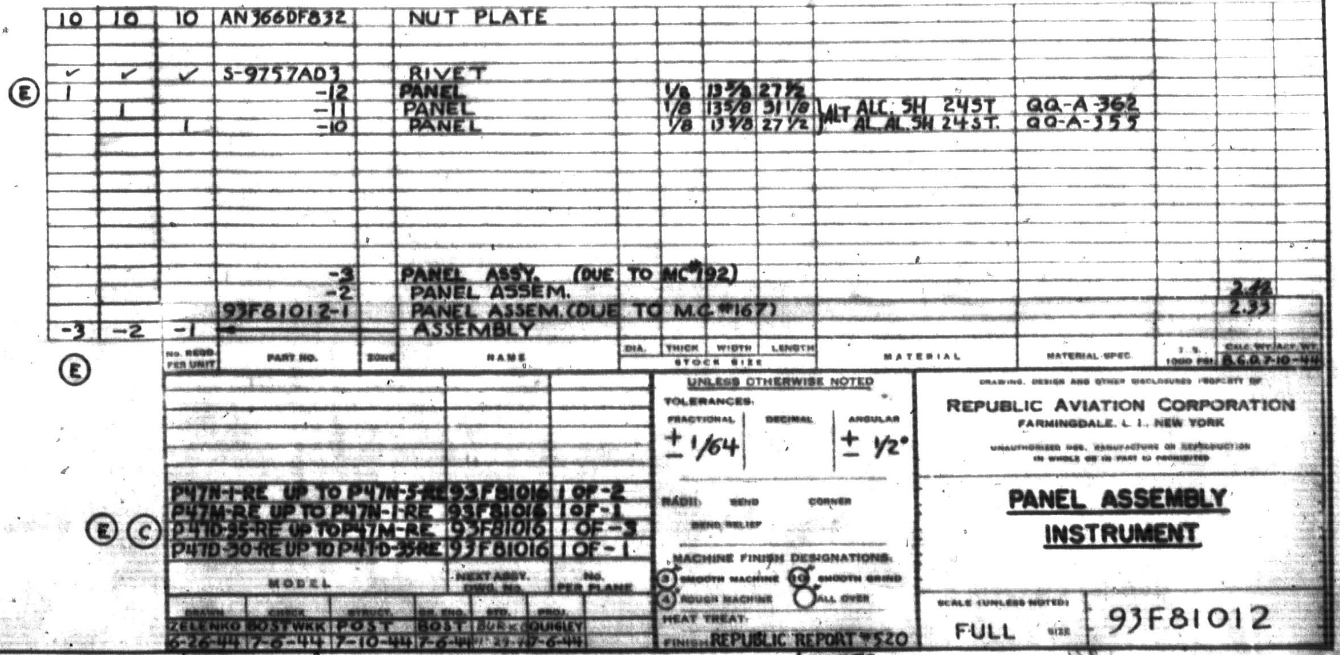 10 10 10 AN366DF832 NUT PLATE
✓ ✓ ✓ S-9757AD3 RIVET
E 1 -12 PANEL 1/8 13 5/8 27 1/2
1 -11 PANEL 1/8 13 5/8 31 1/8 ALT ALC. SH 24ST QQ-A-362
1 -10 PANEL 1/8 13 5/8 27 1/2 AL. AL. SH 24ST. QQ-A-355
-3 PANEL ASSY. (DUE TO MC#192)
-2 PANEL ASSEM. 2.42
93F81012-1 PANEL ASSEM.(DUE TO M.C.#167) 2.33
-3 -2 -1 ASSEMBLY
E NO. REQD PER UNIT PART NO. ZONE NAME DIA. THICK WIDTH LENGTH
STOCK SIZE MATERIAL MATERIAL SPEC. T.S. 1000 PSI CALC. WT. ACT. WT.
B.G.D. 7-10-44
UNLESS OTHERWISE NOTED
TOLERANCES:
FRACTIONAL DECIMAL ANGULAR
± 1/64 ± 1/2°
RADII: BEND CORNER
BEND RELIEF
MACHINE FINISH DESIGNATIONS.
3 SMOOTH MACHINE 10 SMOOTH GRIND
4 ROUGH MACHINE ALL OVER
HEAT TREAT:
FINISH REPUBLIC REPORT #520
P47N-1-RE UP TO P47N-5-RE 93F81016 1 OF -2
P47M-RE UP TO P47N-1-RE 93F81016 1 OF -1
E C P47D-35-RE UP TO P47M-RE 93F81016 1 OF -3
P47D-30-RE UP TO P47D-35-RE 93F81016 1 OF -1
MODEL NEXT ASSY. DWG. NO. NO. PER PLANE
DRAWN CHECK STRUCT. PROJ.
ZELENKO BOST WKK POST BOST QUIGLEY
6-26-44 7-6-44 7-10-44 7-6-44 7-6-44
DRAWING, DESIGN AND OTHER DISCLOSURES PROPERTY OF
REPUBLIC AVIATION CORPORATION
FARMINGDALE, L. I., NEW YORK
UNAUTHORIZED USE, MANUFACTURE OR REPRODUCTION
IN WHOLE OR IN PART IS PROHIBITED
PANEL ASSEMBLY
INSTRUMENT
SCALE (UNLESS NOTED)
FULL SIZE 93F81012